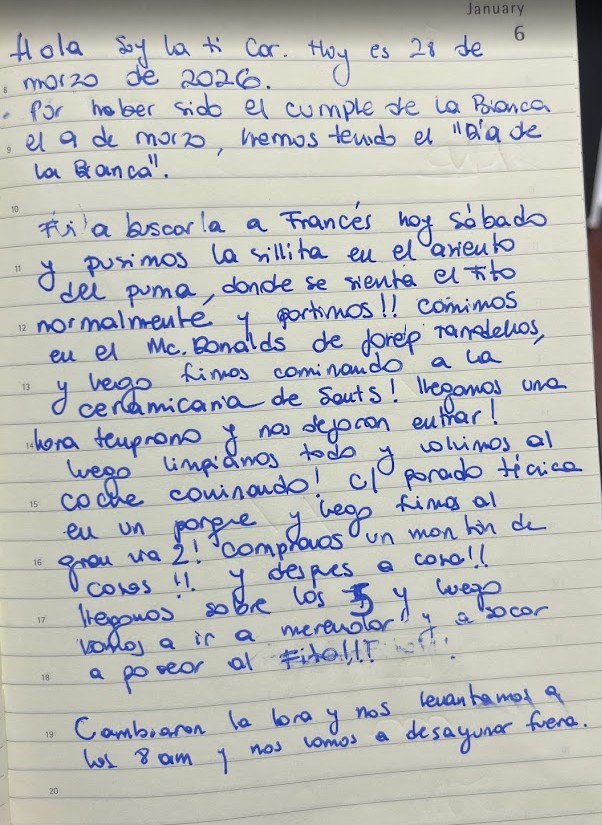 January
6
Hola soy la ti Car. Hoy es 28 de
8 marzo de 2026.
• Por haber sido el cumple de la Bianca
9 el 9 de marzo, hemos tenido el "Día de
la Bianca".
10
Fui a buscarla a Francés hoy sábado
11 y pusimos la sillita en el asiento
del puma, donde se sienta el tito
12 normalmente y partimos!! comimos
en el Mc. Donalds de
13 y luego fimos caminando a la
ceramicaria de Sants! llegamos una
14 hora temprano y nos dejaron entrar!
luego limpiamos todo y volvimos al
15 coche caminando! c/ parada técnica
en un parque y luego fimos al
16 gran via 2! Compramos un montón de
cosas!! y despues a casa!!
17 llegamos sobre las 5 y luego
vamos a ir a merendar y a sacar
18 a pasear al Fito!!!
19 Cambiaron la hora y nos levantamos a
las 8 am y nos vamos a desayunar fuera.
20